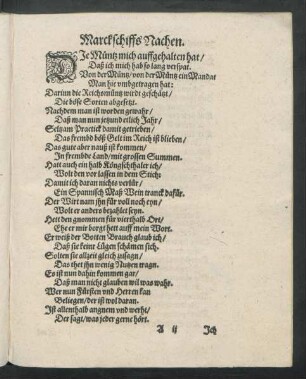 Marckschiffs Nachen.
DIe Müntz mich auffgehalten hat/
Daß ich mich hab so lang verspat.
Von der Müntz/ von der Müntz ein Mandat
Man hie vmbgetragen hat:
Darinn die Reichsmüntz wirdt geschätzt/
Die böse Sorten abgesetzt.
Nachdem man ist worden gewahr/
Daß man nun jetzund etlich Jahr/
Seltzam Practick damit getrieben/
Das frembd böß Gelt im Reich ist blieben/
Das gute aber nauß ist kommen/
In frembde Land/ mit grossen Summen.
Hatt auch ein halb Königsthaler ich/
Wolt den vor lassen in dem Stich:
Damit ich daran nichts verlür/
Ein Spannisch Maß Wein tranck dafür.
Der Wirt nam jhn für voll noch eyn/
Wolt er anders bezahlet seyn.
Hett den gnommen für vierthalb Ort/
Ehe er mir borgt hett auff mein Wort.
Er weiß der Botten Brauch glaub ich/
Daß sie keine Lügen schämen sich.
Solten sie allzeit gleich zusagn/
Das thet jhn wenig Nutzen tragn.
Es ist nun dahin kommen gar/
Daß man nicht glauben wil was wahr.
Wer nun Fürsten vnd Herren kan
Beliegen/ der ist wol daran.
Ist allenthalb angnem vnd werht/
Der sagt/ was jeder gerne hört.
A ij Ich